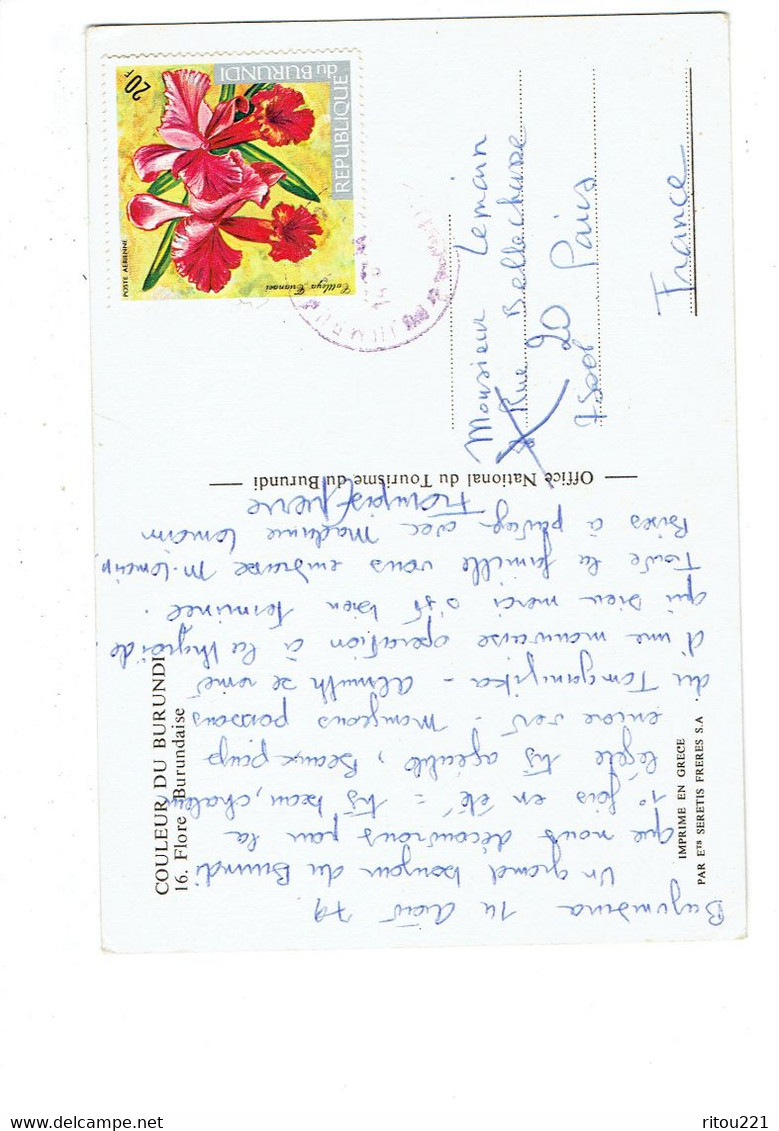 COULEUR DU BURUNDI
16. Flore Burundaise
Bujumbura 14 août 79
Un grand bonjour du Burundi
que nous découvrons pour la
1° fois en été = très beau, chaleur
légère très agréable, Beaux pays
encore vert. Mangeons poissons
du Tanganyika - Almuth se remet
d'une mauvaise opération à la thyroïde
qui dieu merci s'est bien terminée.
Toute la famille vous embrasse M. Lemain,
Bises à partager avec Madame Lemain
François Pierre
— Office National du Tourisme du Burundi —
IMPRIME EN GRECE
PAR ETS SERETIS FRERES S.A
REPUBLIQUE
du BURUNDI
20F
POSTE AERIENNE
Cattleya Trianaei
Monsieur Lemain
Rue Bellechasse
20 Paris
France
https://www.delcampe.net
ritou221